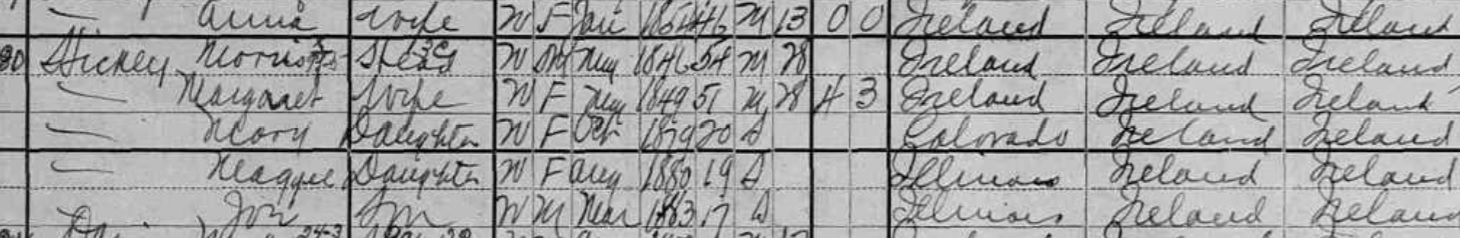 — Anna Wife W F Jan 46 M 13 0 0 Ireland Ireland Ireland
Hickey Morris Head W M May 1846 54 M 28 Ireland Ireland Ireland
— Margaret Wife W F May 1849 51 M 28 4 3 Ireland Ireland Ireland
— Mary Daughter W F Oct 1879 20 S Colorado Ireland Ireland
— Maggie Daughter W F Aug 1880 19 S Illinois Ireland Ireland
Son W M Mar 1883 17 S Illinois Ireland Ireland